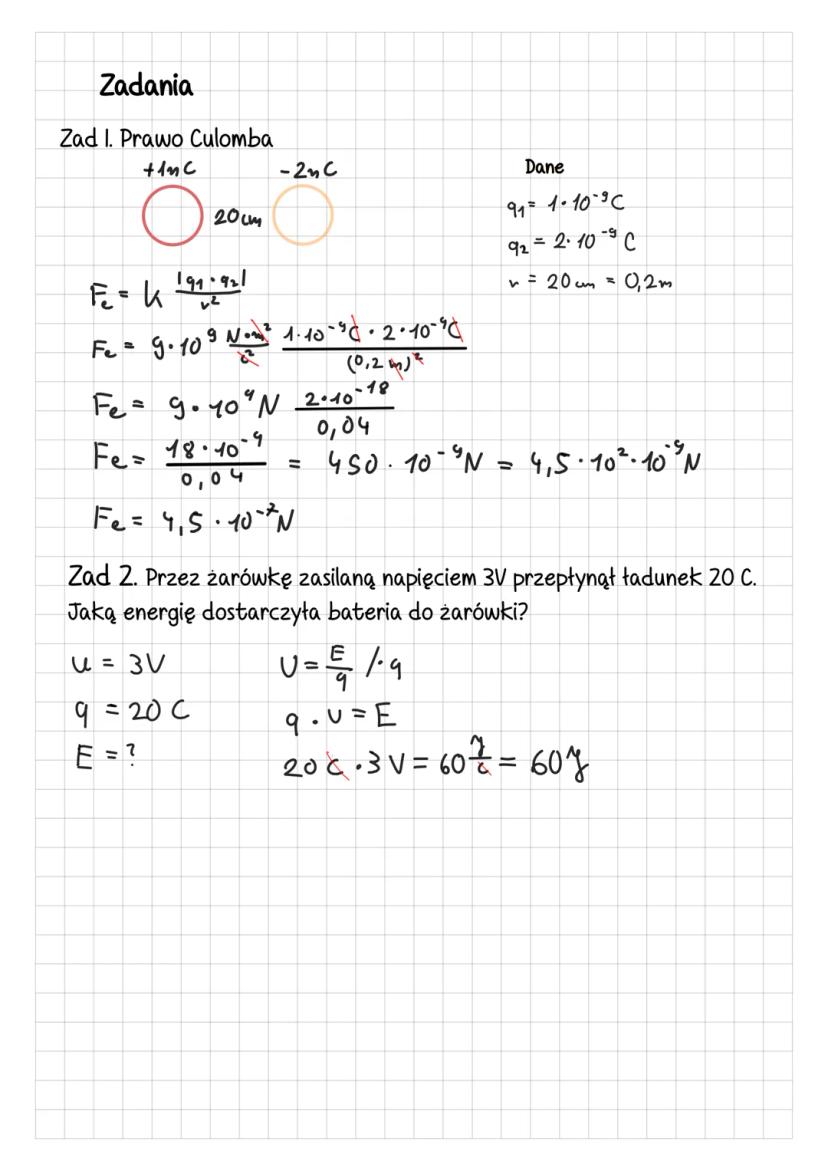 Zadania
Zad 1. Prawo Culomba
+1nC -2nC Dane
20cm
q₁ = 1·10⁻⁹C
q₂ = 2·10⁻⁹ C
r = 20 cm = 0,2m
Fₑ = k |q₁·q₂| / r²
Fₑ = 9·10⁹ N·m²/C² 1·10⁻⁹C · 2·10⁻⁹C / (0,2 m)²
Fₑ = 9·10⁹ N 2·10⁻¹⁸ / 0,04
Fₑ = 18·10⁻⁹ / 0,04 = 450·10⁻⁹N = 4,5·10²·10⁻⁹N
Fₑ = 4,5·10⁻⁷N
Zad 2. Przez żarówkę zasilaną napięciem 3V przepłynął ładunek 20 C.
Jaką energię dostarczyła bateria do żarówki?
U = 3V U = E/q /·q
q = 20 C q·U = E
E = ? 20 C · 3 V = 60 J/C = 60 J